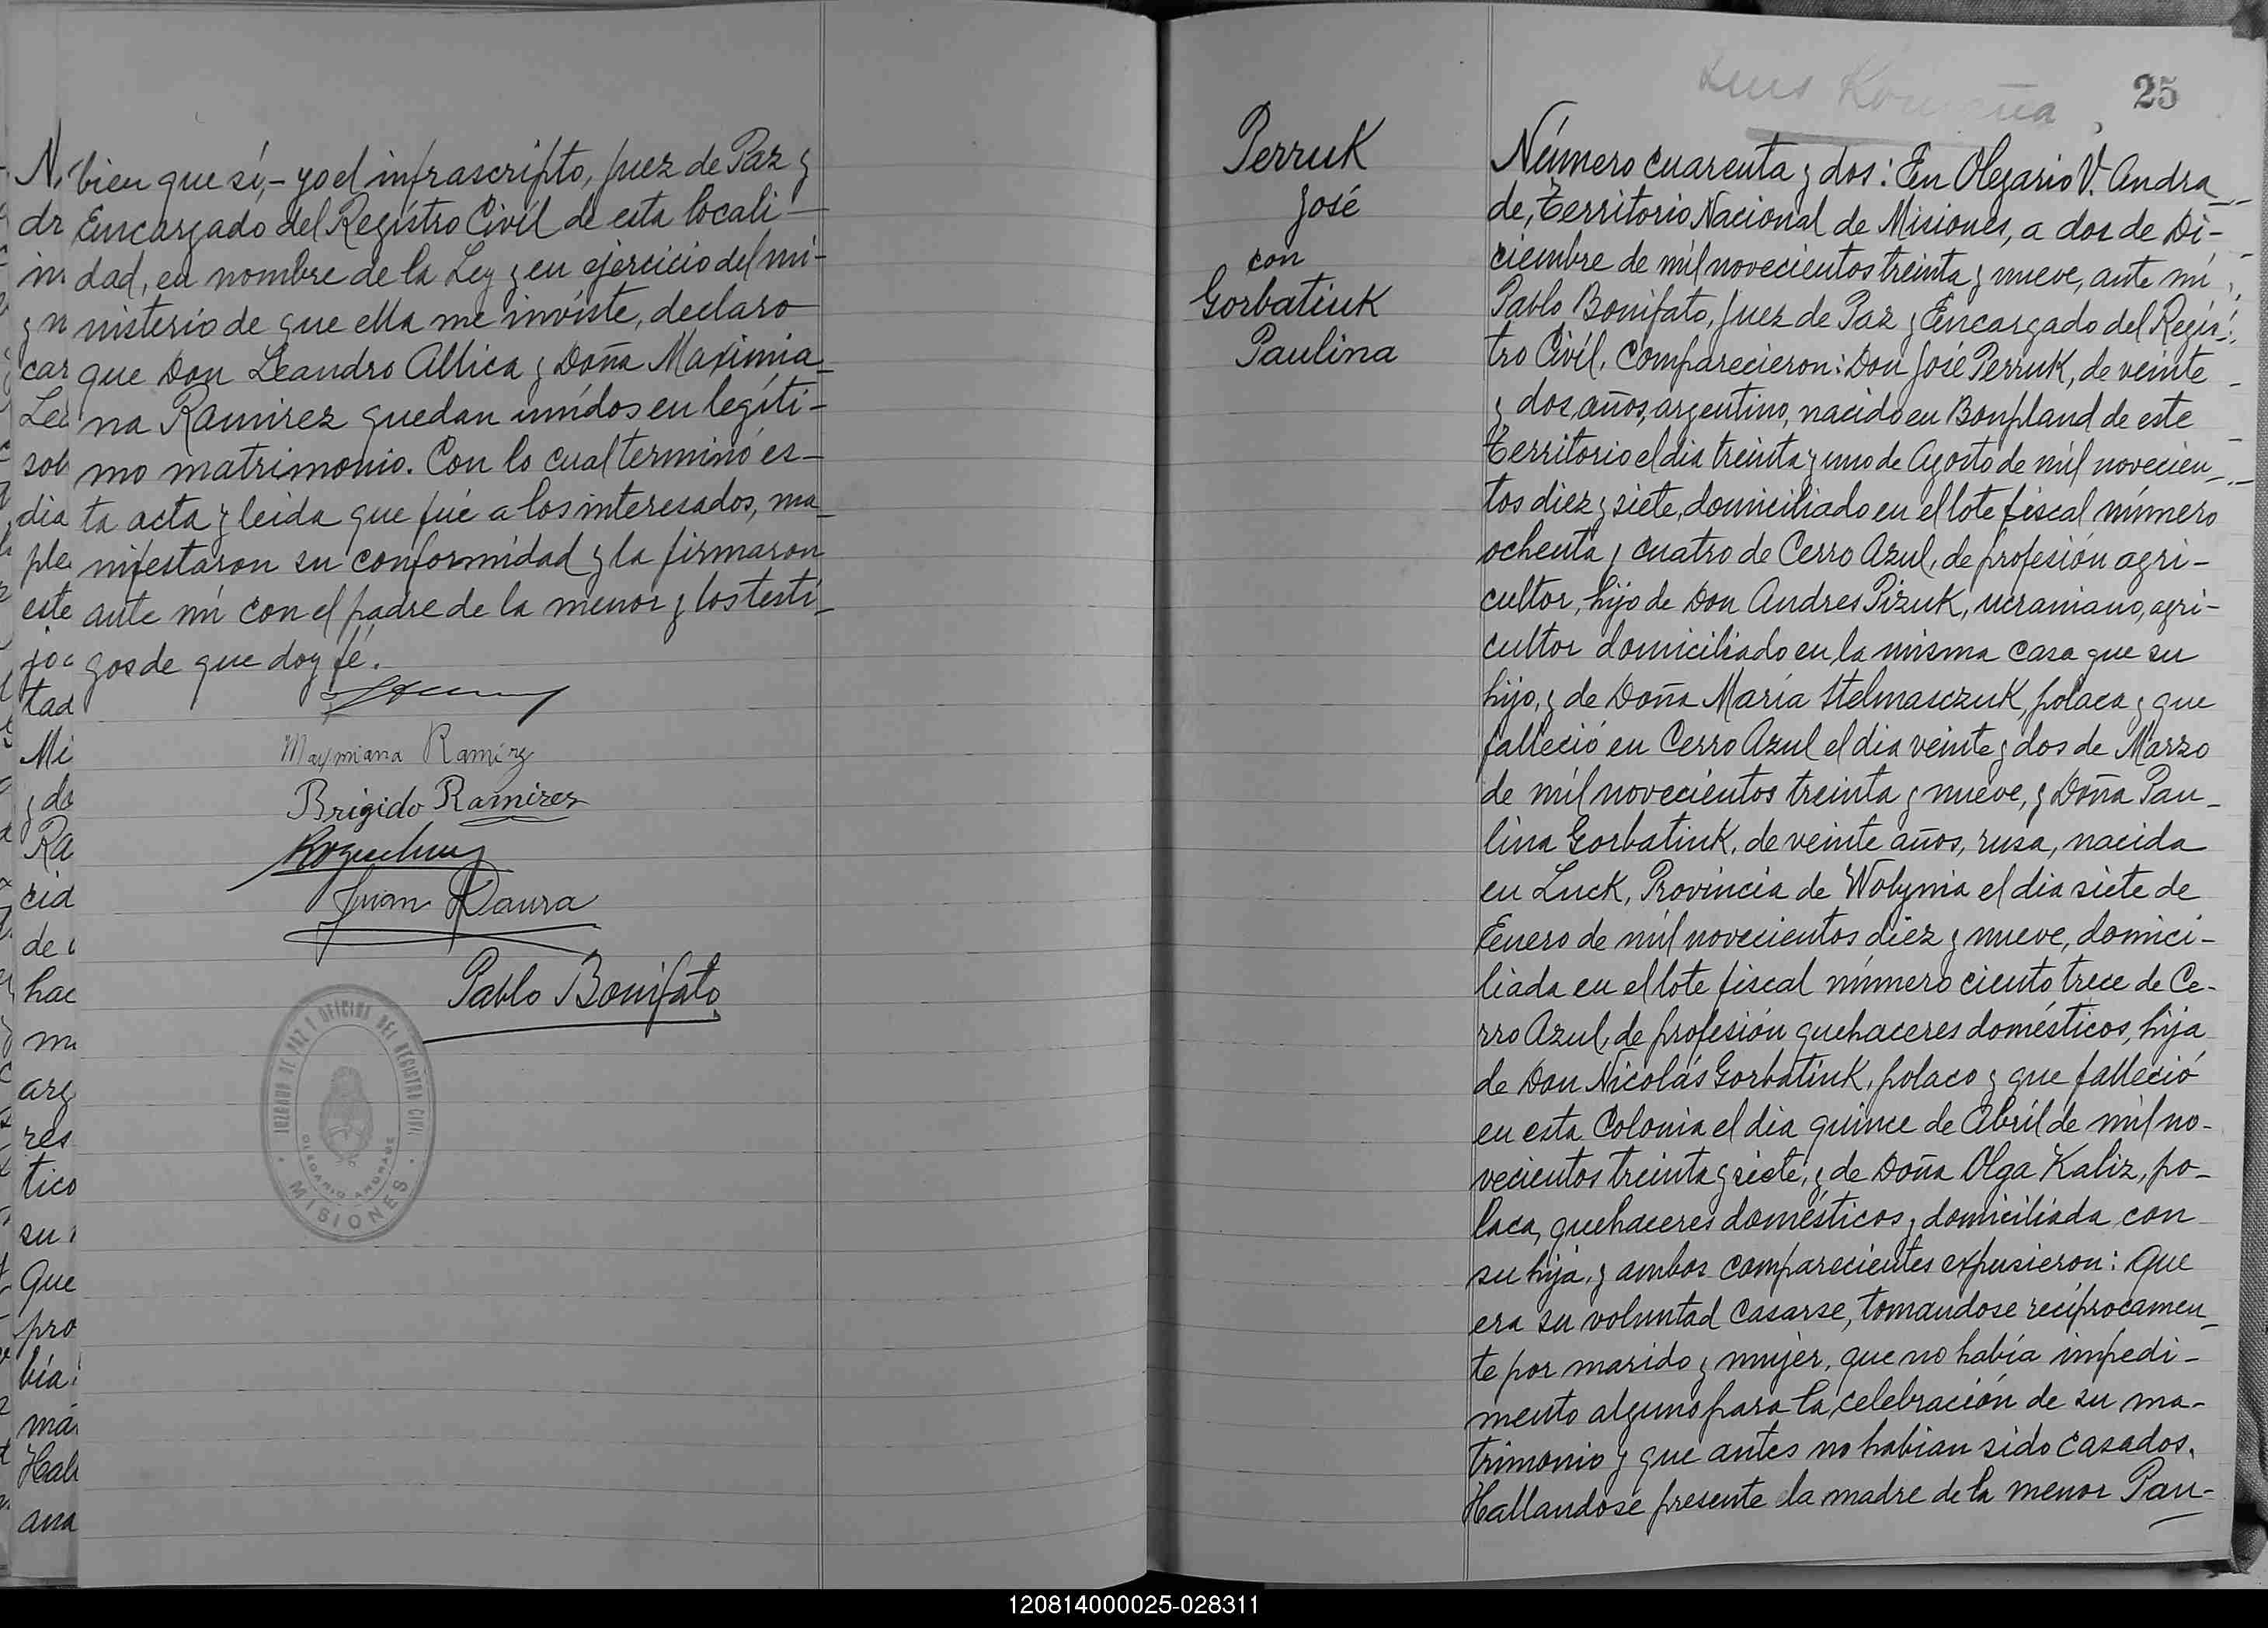 bien que sí,- yo el infrascripto, Juez de Paz y
Encargado del Registro Civil de esta locali-
dad, en nombre de la Ley y en ejercicio del mi-
nisterio de que ella me inviste, declaro
que Don Leandro Allica y Doña Maximia-
na Ramirez quedan unidos en legíti-
mo matrimonio. Con lo cual terminó es-
ta acta y leida que fué a los interesados, ma-
nifestaron su conformidad y la firmaron
ante mí con el padre de la menor y los testi-
gos de que doy fé.
Maxymiana Ramirez
Brigido Ramirez
Juan Daura
Pablo Bonifato
JUZGADO DE PAZ Y OFICINA DEL REGISTRO CIVIL
OLEGARIO ANDRADE
MISIONES
N.
dr
in
y n
car
Lea
sob
dia
ple
este
joc
tad
Mi
y do
Ra
cid
de
hac
mi
arg
res
tico
su
Que
pro
bía
má
Hall
ana
Luis
25
Perruk
José
con
Gorbatiuk
Paulina
Número cuarenta y dos: En Olegario V. Andra-
de, Territorio Nacional de Misiones, a dos de Di-
ciembre de mil novecientos treinta y nueve, ante mí
Pablo Bonifato, Juez de Paz y Encargado del Regis-
tro Civil, Comparecieron: Don José Perruk, de veinte
y dos años, argentino, nacido en Bonpland de este
Territorio el dia treinta y uno de Agosto de mil novecien-
tos diez y siete, domiciliado en el lote fiscal número
ochenta y cuatro de Cerro Azul, de profesión agri-
cultor, hijo de Don Andres Pizuk, ucraniano, agri-
cultor domiciliado en la misma casa que su
hijo, y de Doña María Stelmasczuk, polaca y que
falleció en Cerro Azul el dia veinte y dos de Marzo
de mil novecientos treinta y nueve, y Doña Pau-
lina Gorbatiuk, de veinte años, rusa, nacida
en Luck, Provincia de Wolynia el dia siete de
Enero de mil novecientos diez y nueve, domici-
liada en el lote fiscal número ciento trece de Ce-
rro Azul, de profesión quehaceres domésticos, hija
de Don Nicolás Gorbatiuk, polaco y que falleció
en esta Colonia el dia quince de Abril de mil no-
vecientos treinta y siete, y de Doña Olga Kaliz, po-
laca, quehaceres domésticos, domiciliada con
su hija, y ambos comparecientes expusieron: Que
era su voluntad casarse, tomandose recíprocamen-
te por marido y mujer, que no había impedi-
mento alguno para la celebración de su ma-
trimonio y que antes no habian sido casados.
Hallandose presente la madre de la menor Pau-
120814000025-028311